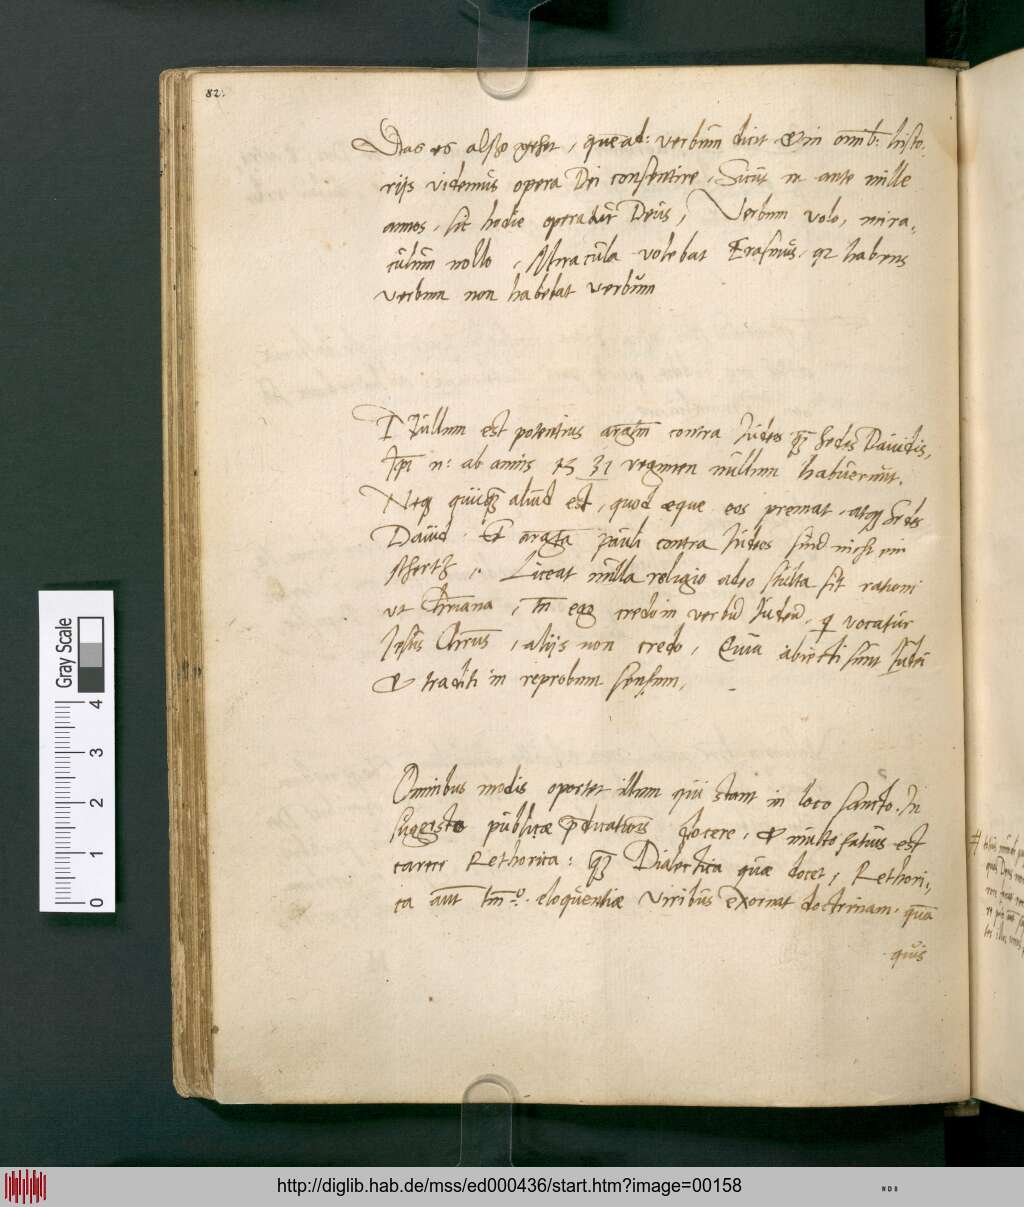 82.
Das es also gehet, quead: verbum dicit & in omīb: histo,
rijs videmus opera Dei consentire. Sicut n ante mille
annos, sic hodie operatur Deus, Verbum volo, mira,
culum nollo, Miracula volebat Erasmus, qz habens
verbum non habebat verbum
Nullum est potentius argm contra Judeos qz sedes Dauidis,
Ipi n: ab annis 15 31 regimen nullum habuerunt.
Neqz quicqz aliud est, quod æque eos premat, atqz sedes
Dauid. Et argta pauli contra Judeos sind nicht ein
schertz,. Liceat nulla religio adeo stulta sit rationi
ut Chriana, tn ego credo in verbū Judeū, q vocatur
Jesus Chrus, alijs non credo, Quia abiecti sunt Judei
& traditi in reprobum sensum,
Omnibus modis oportet illum qui stant in loco sancto. In
suggesto publicæ pdicatiōis docere, & multo satius est
carere Rethorica: qz Dialectica quæ docet, Rethori,
ca aut tm̄o. eloquentiæ viribus exornat doctrinam, quā
quis
Gray Scale
4
3
2
1
0
http://diglib.hab.de/mss/ed000436/start.htm?image=00158